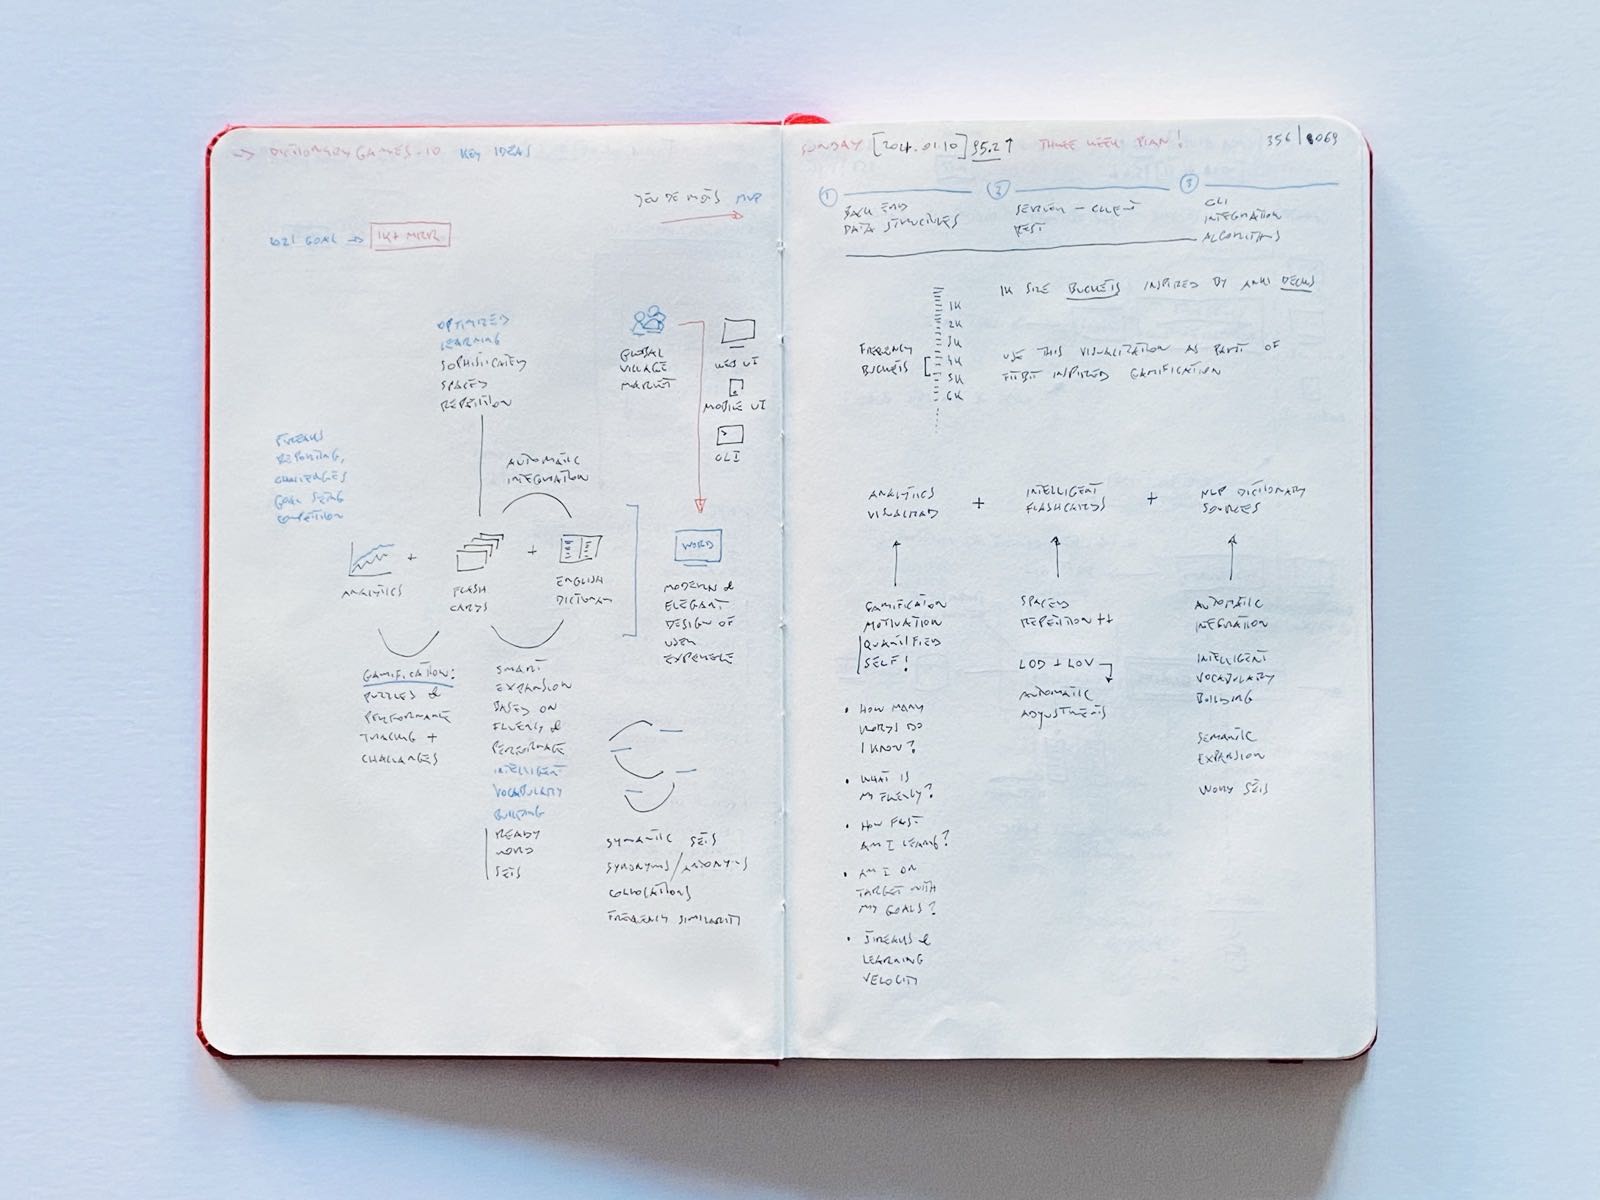 → DICTIONARY GAMES-10 KEY IDEAS
JEU DE MOTS MVP
2021 GOAL → 1K+ MRR
OPTIMIZED
LEARNING
SOPHISTICATED
SPACED
REPETITION
GLOBAL
VILLAGE
MARKET
WEB UI
MOBILE UI
CLI
STREAKS
REPORTING,
CHALLENGES
GOAL SETING
COMPETITION
AUTOMATIC
INTEGRATION
ANALYTICS
+
FLASH
CARDS
+
ENGLISH
DICTIONARY
WORD
MODERN &
ELEGANT
DESIGN OF
USER
EXPERIENCE
GAMIFICATION:
PUZZLES &
PERFORMANCE
TRACKING +
CHALLANGES
SMART
EXPANSION
BASED ON
FLUENCY &
PERFORMANCE
INTELLIGENT
VOCABULARY
BUILDING
READY
WORD
SETS
SYMANTIC SETS
SYNONYMS/ANTONYMS
COLLOCATIONS
FREQUENCY SIMILARITY
SUNDAY THREE WEEK PLAN!
1
BACK END
DATA STRUCTURES
2
SERVER - CLIENT
REST
3
CLI
INTEGRATION
ALGORITHMS
1K SIZE BUCKETS INSPIRED BY ANKI DECKS
1K
2K
3K
4K
5K
6K
FREQENCY
BUCKETS
USE THIS VISUALIZATION AS PART OF
FITBIT INSPIRED GAMIFICATION
ANALYTICS
+
INTELLIGENT
FLASHCARDS
+
NLP DICTIONARY
SOURCES
GAMIFICATION
MOTIVATION
QUANTIFIED
SELF!
• HOW MANY
WORDS DO
I KNOW?
• WHAT IS
MY FLUENCY?
• HOW FAST
AM I LEARNING?
• AM I ON
TARGET WITH
MY GOALS?
• STREAKS &
LEARNING
VELOCITY
SPACED
REPETITION ++
LOD + LOV
AUTOMATIC
ADJUSTMENTS
AUTOMATIC
INTEGRATION
INTELLIGENT
VOCABULARY
BUILDING
SEMANTIC
EXPANSION
WORD SETS